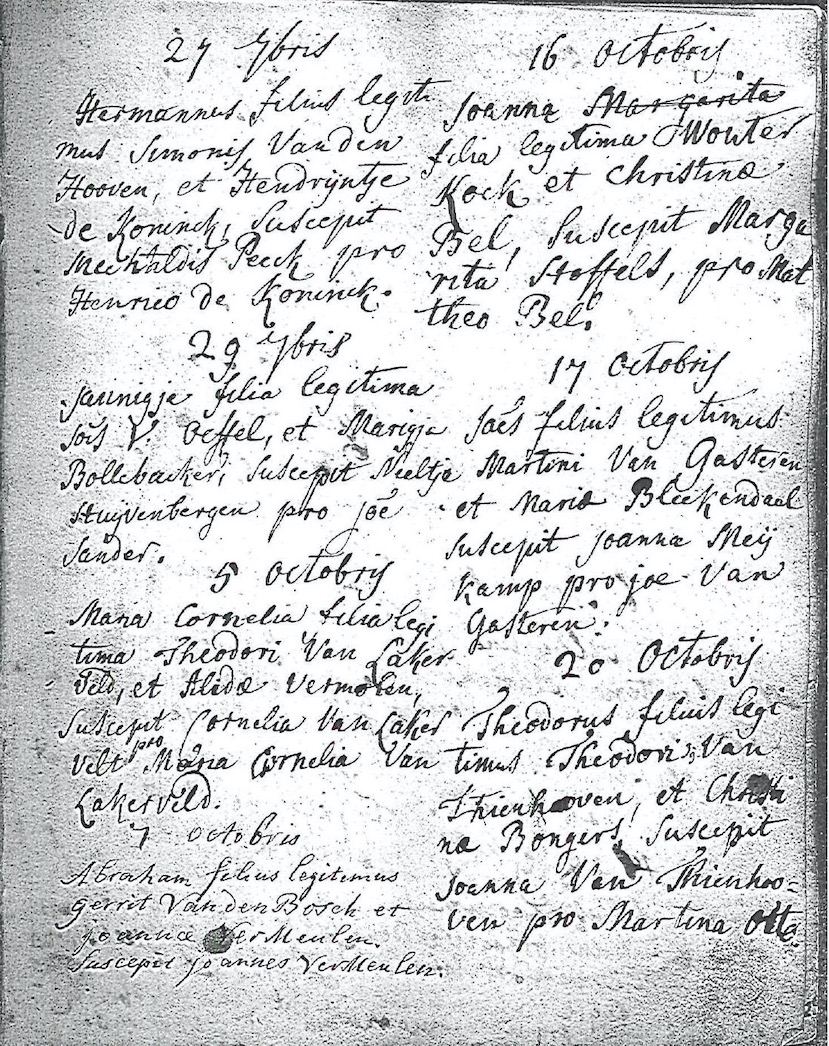 27 7bris
Hermannus filius legiti
mus Simonis Van den
Hooven, et Hendrijntje
de Koninck, Suscepit
Mechtaldis Peeck pro
Henrico de Koninck.
29 7bris
Jannigje filia legitima
Jois V. Oeffel, et Marigja
Bollebacker, suscepit Neeltje
Stuijvenbergen pro joe
Sander.
5 Octobris
Maria Cornelia filia legi
tima Theodori Van Laker
veld, et Alidæ Vermolen,
Suscepit Cornelia Van Laker
velt pro Maria Cornelia Van
Lakerveld.
7 octobris
Abraham filius legitimus
Gerrit Van den Bosch et
joannæ VerMeulen.
Suscepit joannes VerMeulen.
16 Octobris
Joanna Margarita
filia legitima Wouter
Kock et Christinæ
Bel, Suscepit Marga
rita Stoffels, pro Mat
theo Bel.
17 Octobris
Joes filius legitimus
Martini Van Gasteren
et Mariæ Bleekendael
suscepit joanna Meij
kamp pro joe Van
Gasteren.
20 Octobris
Theodorus filius legi
timus Theodori Van
Thienhooven, et Christi
næ Bongers, Suscepit
Joanna Van Thienhoo=
ven pro Martina Otta